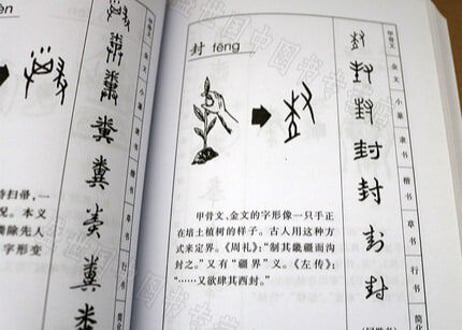 封 fēng
甲骨文、金文的字形像一只手正
在培土植树的样子。古人用这种方
式来定界。《周礼》：“制其畿疆而沟
封之。”又有“疆界”义。《左传》：
“……又欲肆其西封。”
甲骨文
金文
小篆
隶书
楷书
草书
行书
简化
封
封
封
封
封
封
封
fèn
粪
糞
糞
糞
持扫帚，一
况。本义
清除先人
字形变
甲骨文
金文
小篆
隶书
楷书
草书
行书
简化